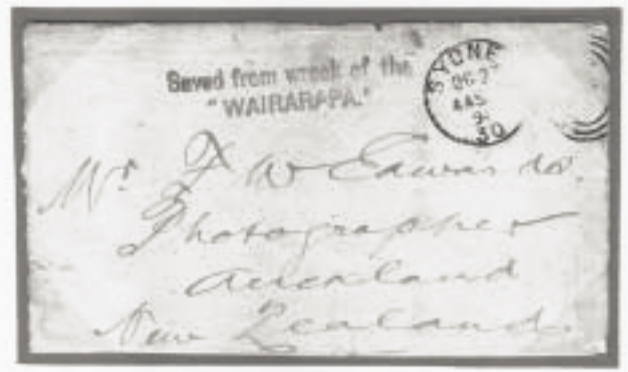 Saved from wreck of the
"WAIRARAPA."
SYDNE
OC 2
4.45
9
30
Mr F W Edwards.
Photographer
Auckland
New Zealand.